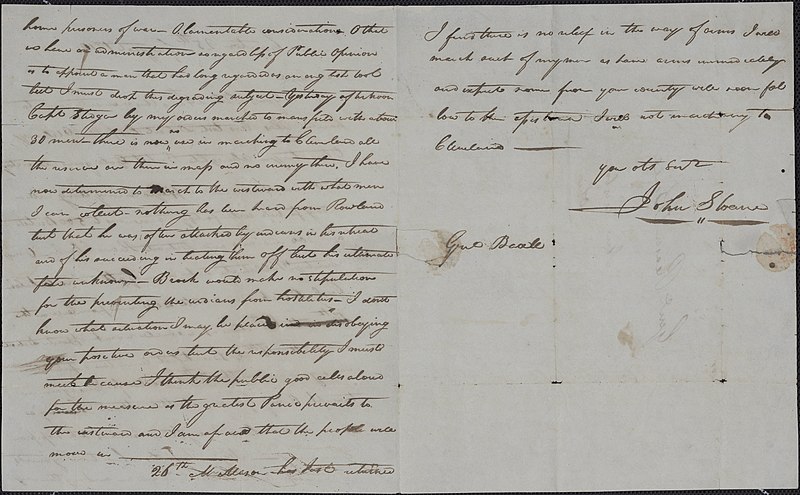 home prisoners of war – A lamentable consideration O that
we have an administration so regardless of Public Opinion
as to appoint a man that has long regarded as an arg test tool
but I must drop this degrading subject – Yesterday afternoon
Capt Stoyer by my orders marched to mansfield with about
30 men – there is now no use in marching to Cleveland all
the reserve are there in mass and no enemy there, I have
now determined to march to the westward with what men
I can collect – nothing has been heard from Rowland
but that he was often attacked by indians in his retreat
and of his succeeding in beating them off but his ultimate
fate unknown – Brock would make no stipulations
for the preventing the indians from hostilities – I dont
know what situation I may be placed in as disobeying
your positive orders but the responsibility I must
meet because I think the public good calls aloud
for the measure as the greatest Panic prevails to
the westward and I am afraid that the people will
move in
26th Mr Allison has Just returned
I find there is no relief in the way of arms I will
march such of my men as have arms immediately
and expect some from your county will soon fol
low to be I will not march any to
Cleveland
your obt Servt
John Sloane
Genl Beall